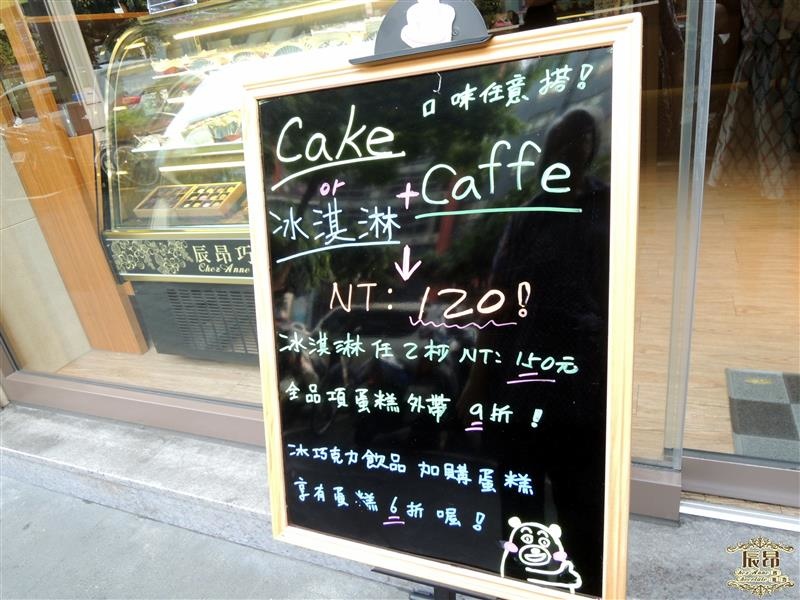 口味任意搭!
Cake
or
冰淇淋
+Caffe
↓
NT:120!
冰淇淋任2杯 NT:150元
全品項蛋糕外帶 9折!
冰巧克力飲品 加購蛋糕
享有蛋糕6折喔!
辰昂巧
Chez Anne
辰昂
Chez Anne
Chocolate